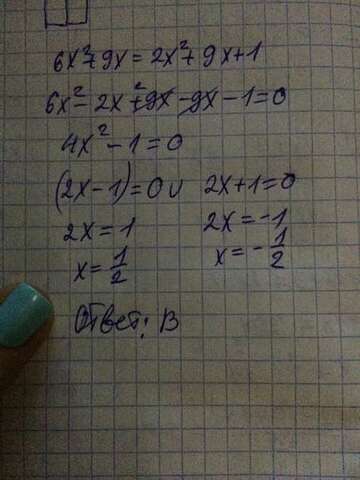 6x²+9x = 2x²+9x+1
6x²-2x²+9x-9x-1=0
4x²-1=0
(2x-1)=0 и 2x+1=0
2x=1 2x=-1
x=1/2 x=-1/2
Ответ: В